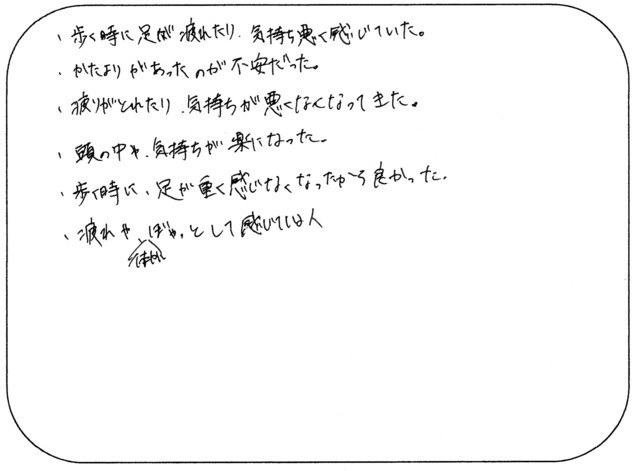 ・歩く時に足が疲れたり、気持ち悪く感じていた。
・かたよりがあったのが不安だった。
・疲りがとれたり、気持ちが悪くなくなってきた。
・頭の中や、気持ちが楽になった。
・歩く時に、足が重く感じなくなったから良かった。
・疲れや、ぼやっとして感じている人